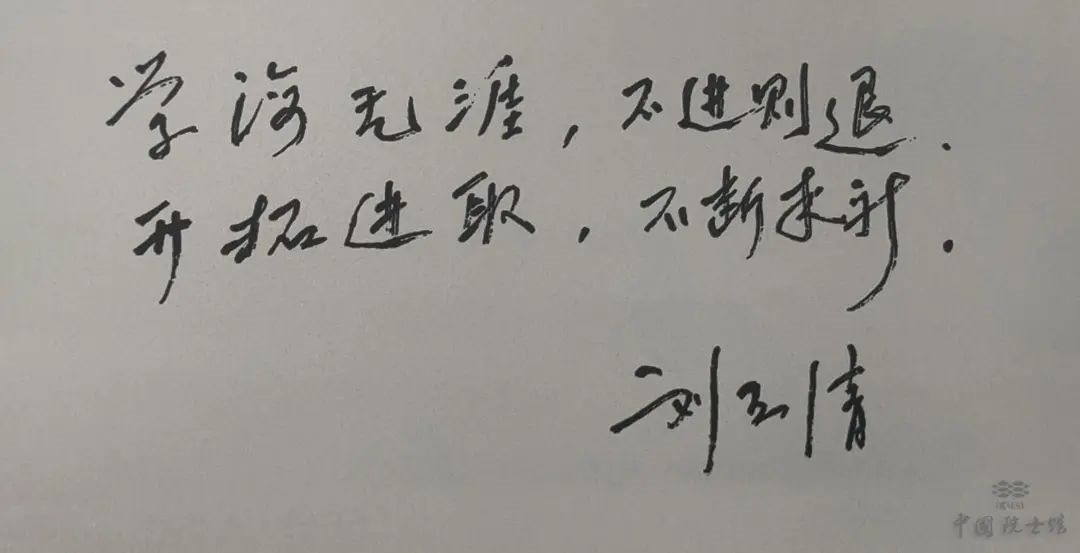 学海无涯，不进则退.
开拓进取，不断求新.
刘玉清
中国院士馆